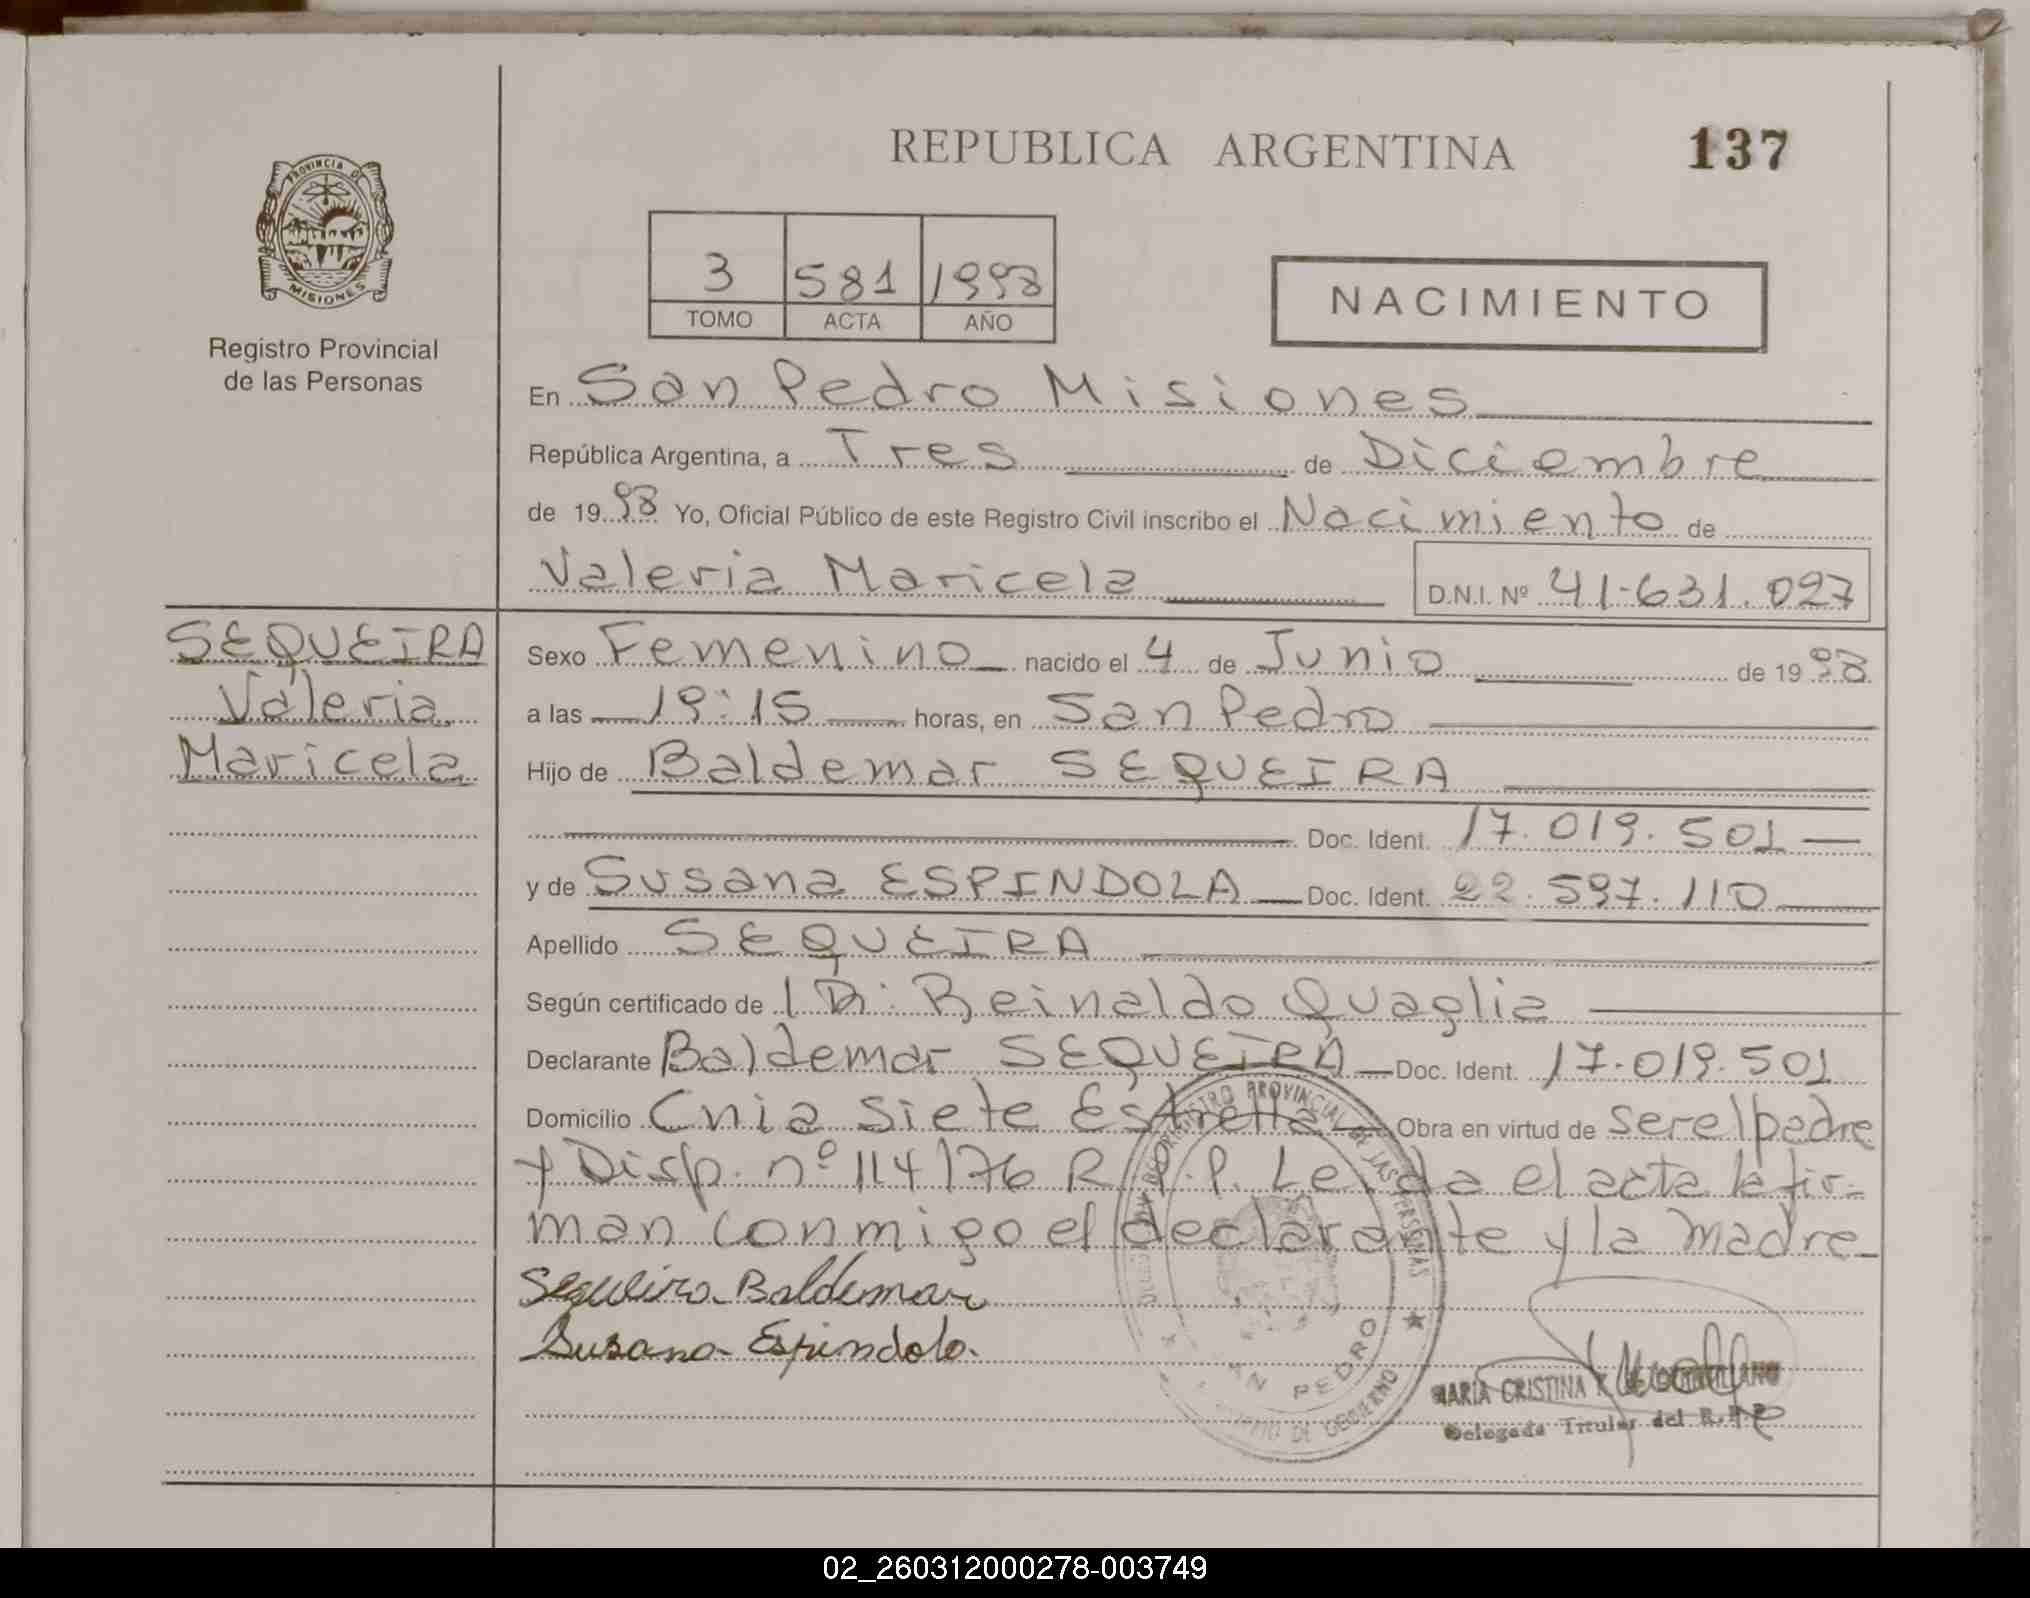 REPUBLICA ARGENTINA 137
PROVINCIA DE
MISIONES
Registro Provincial
de las Personas
3 581 1998
TOMO ACTA AÑO
NACIMIENTO
En San Pedro Misiones
República Argentina, a Tres de Diciembre
de 1998 Yo, Oficial Público de este Registro Civil inscribo el Nacimiento de
Valeria Maricela D.N.I. Nº 41-631.027
SEQUEIRA
Valeria
Maricela
Sexo Femenino nacido el 4 de Junio de 1998
a las 19:15 horas, en San Pedro
Hijo de Baldemar SEQUEIRA
Doc. Ident. 17.019.501
y de Susana ESPINDOLA Doc. Ident. 22.597.110
Apellido SEQUEIRA
Según certificado de Dr: Reinaldo Quaglia
Declarante Baldemar SEQUEIRA Doc. Ident. 17.019.501
Domicilio Cnia Siete Estrella Obra en virtud de ser el padre
y Disp. nº 114/76 R.P.P. Leida el acta la fir-
man conmigo el declarante y la madre
Sequeira Baldemar
Susana Espindola.
REGISTRO PROVINCIAL DE LAS PERSONAS
SAN PEDRO
DE GOBIERNO
MARIA CRISTINA K
Delegada Titular del R.P.P.
02_260312000278-003749